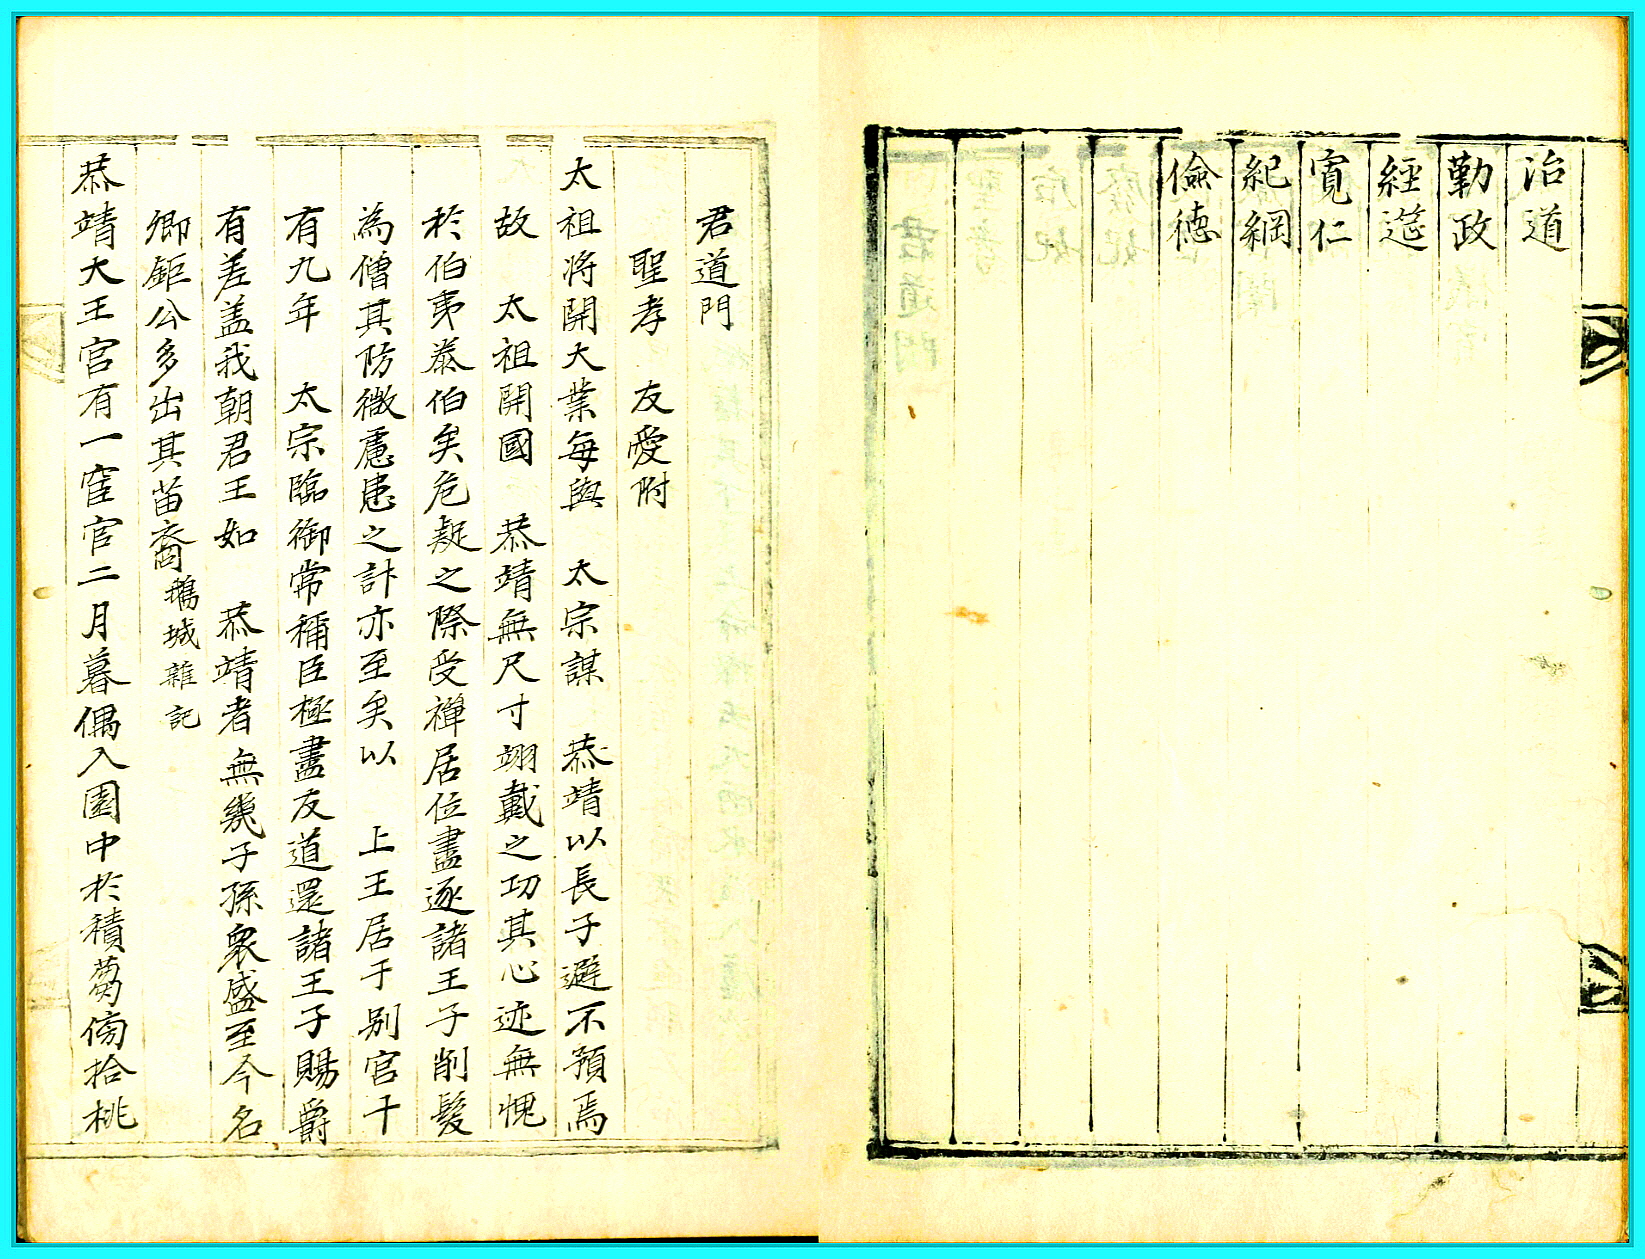 治道
勤政
經筵
寬仁
紀綱
儉德
君道門
聖孝 友愛附
太祖將開大業每與 太宗謀 恭靖以長子避不預焉
故 太祖開國 恭靖無尺寸翊戴之功其心迹無愧
於伯夷泰伯矣危疑之際受禪居位盡逐諸王子削髮
為僧其防微慮患之計亦至矣以 上王居于別宮十
有九年 太宗臨御常稱臣極盡友道還諸王子賜爵
有差盖我朝君王如 恭靖者無幾子孫衆盛至今名
卿鉅公多出其苗裔鵝城雜記
恭靖大王宮有一宦官二月暮偶入園中於積蒭傍拾桃